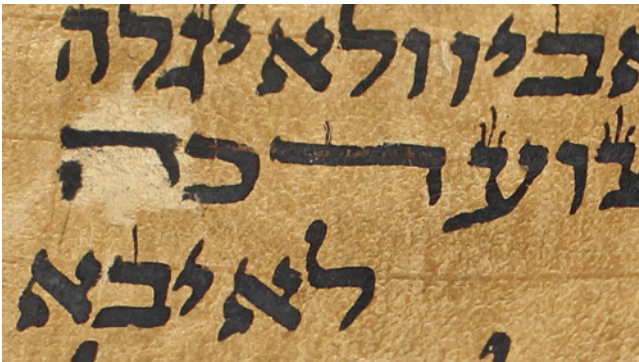 אביו ולא יגלה
צוע דכה
לא יבא